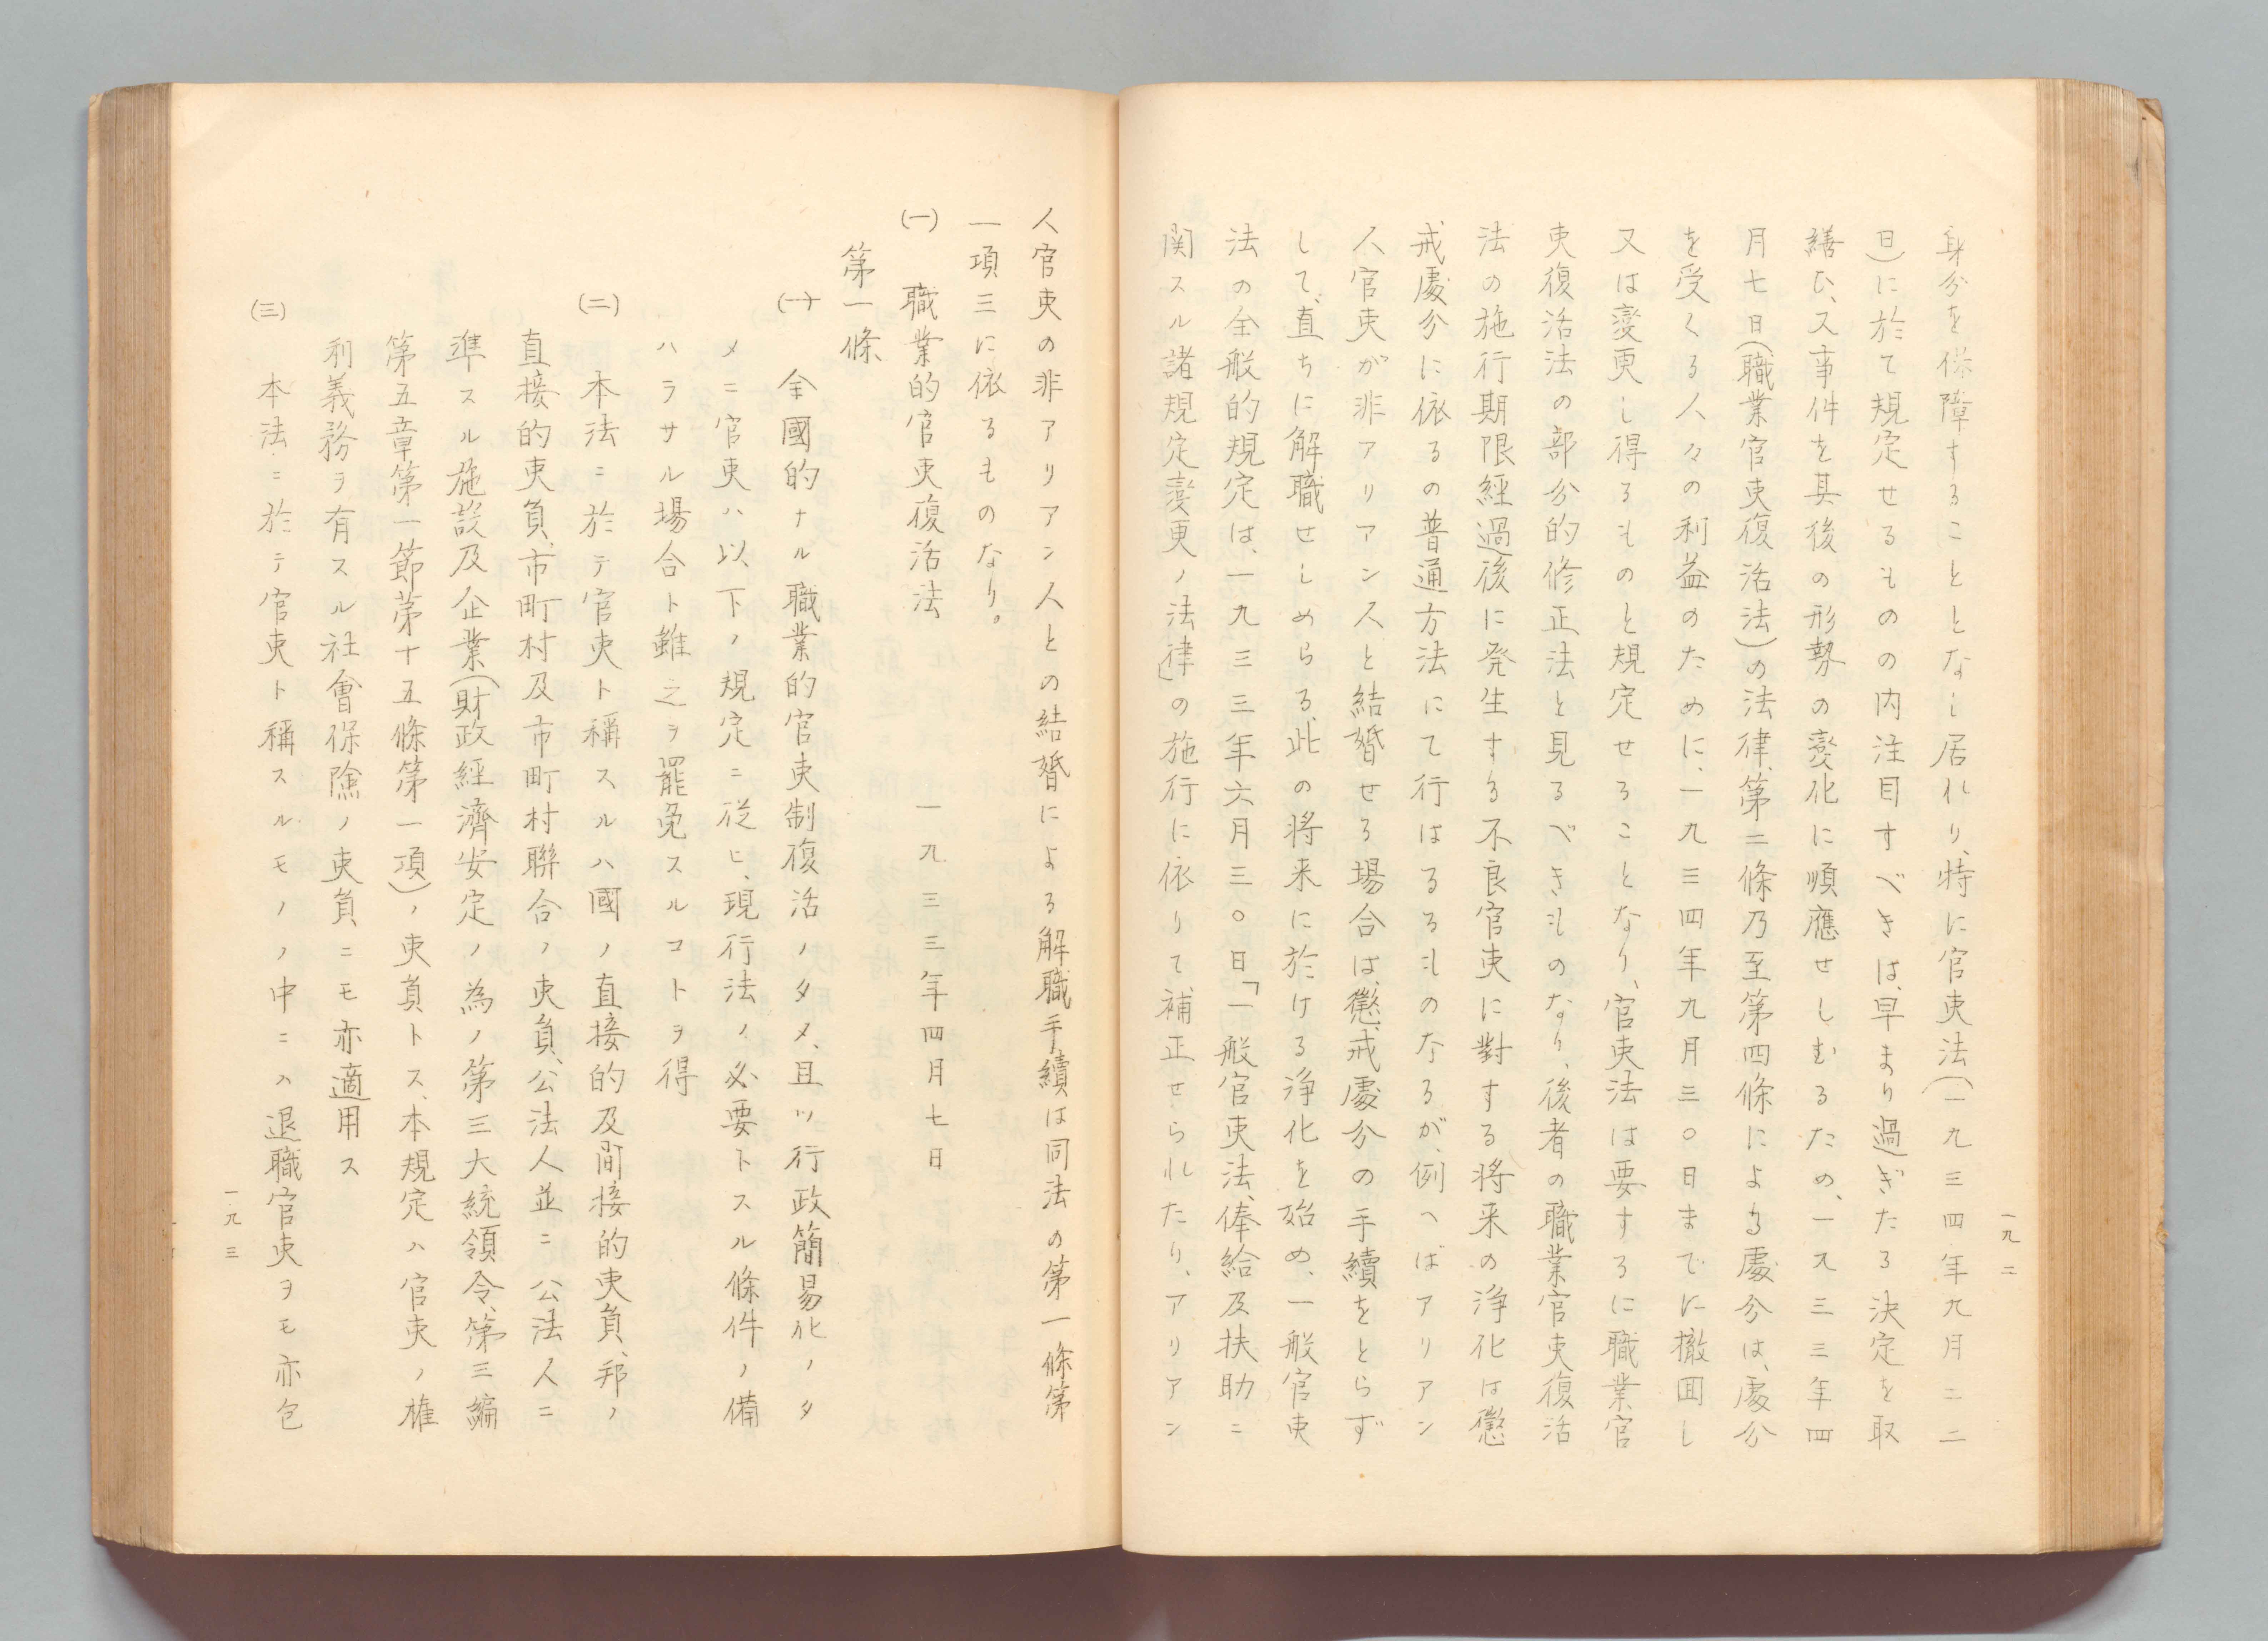 身分を保障することとなし居れり、特に官吏法(一九三四年九月二二
日)に於て規定せるものの内注目すべきは、早まり過ぎたる決定を取
繕ひ、又事件を其後の形勢の變化に順應せしむるため、一九三三年四
月七日(職業官吏復活法)の法律、第二條乃至第四條による處分は、處分
を受くる人々の利益のために、一九三四年九月三〇日までに撤回し
又は變更し得るものと規定せることなり、官吏法は要するに職業官
吏復活法の部分的修正法と見るべきものなり、後者の職業官吏復活
法の施行期限經過後に発生する不良官吏に對する将来の浄化は懲
戒處分に依るの普通方法にて行はるるものなるが、例へばアリアン
人官吏が非アリアン人と結婚せる場合は、懲戒處分の手續をとらず
して、直ちに解職せしめらる、此の将来に於ける浄化を始め、一般官吏
法の全般的規定は、一九三三年六月三〇日「一般官吏法、俸給及扶助ニ
関スル諸規定變更ノ法律」の施行に依りて、補正せられたり、アリアン
一九二
人官吏の非アリアン人との結婚による解職手續は同法の第一條第
一項三に依るものなり。
(一)　職業的官吏復活法　一九三三年四月七日
第一條
(一)　全國的ナル職業的官吏制復活ノタメ、且ツ行政簡易化ノタ
メニ官吏ハ以下ノ規定ニ從ヒ、現行法ノ必要トスル條件ノ備
ハラサル場合ト雖之ヲ罷免スルコトヲ得
(二)　本法ニ於テ官吏ト稱スルハ國ノ直接的及間接的吏員、邦ノ
直接的吏員、市町村及市町村聯合ノ吏員、公法人並ニ公法人ニ
準スル施設及企業(財政經濟安定ノ為ノ第三大統領令、第三編
第五章第一節第十五條第一項)ノ吏員トス、本規定ハ官吏ノ權
利義務ヲ有スル社會保險ノ吏員ニモ亦適用ス
(三)　本法ニ於テ官吏ト稱スルモノノ中ニハ退職官吏ヲモ亦包
一九三